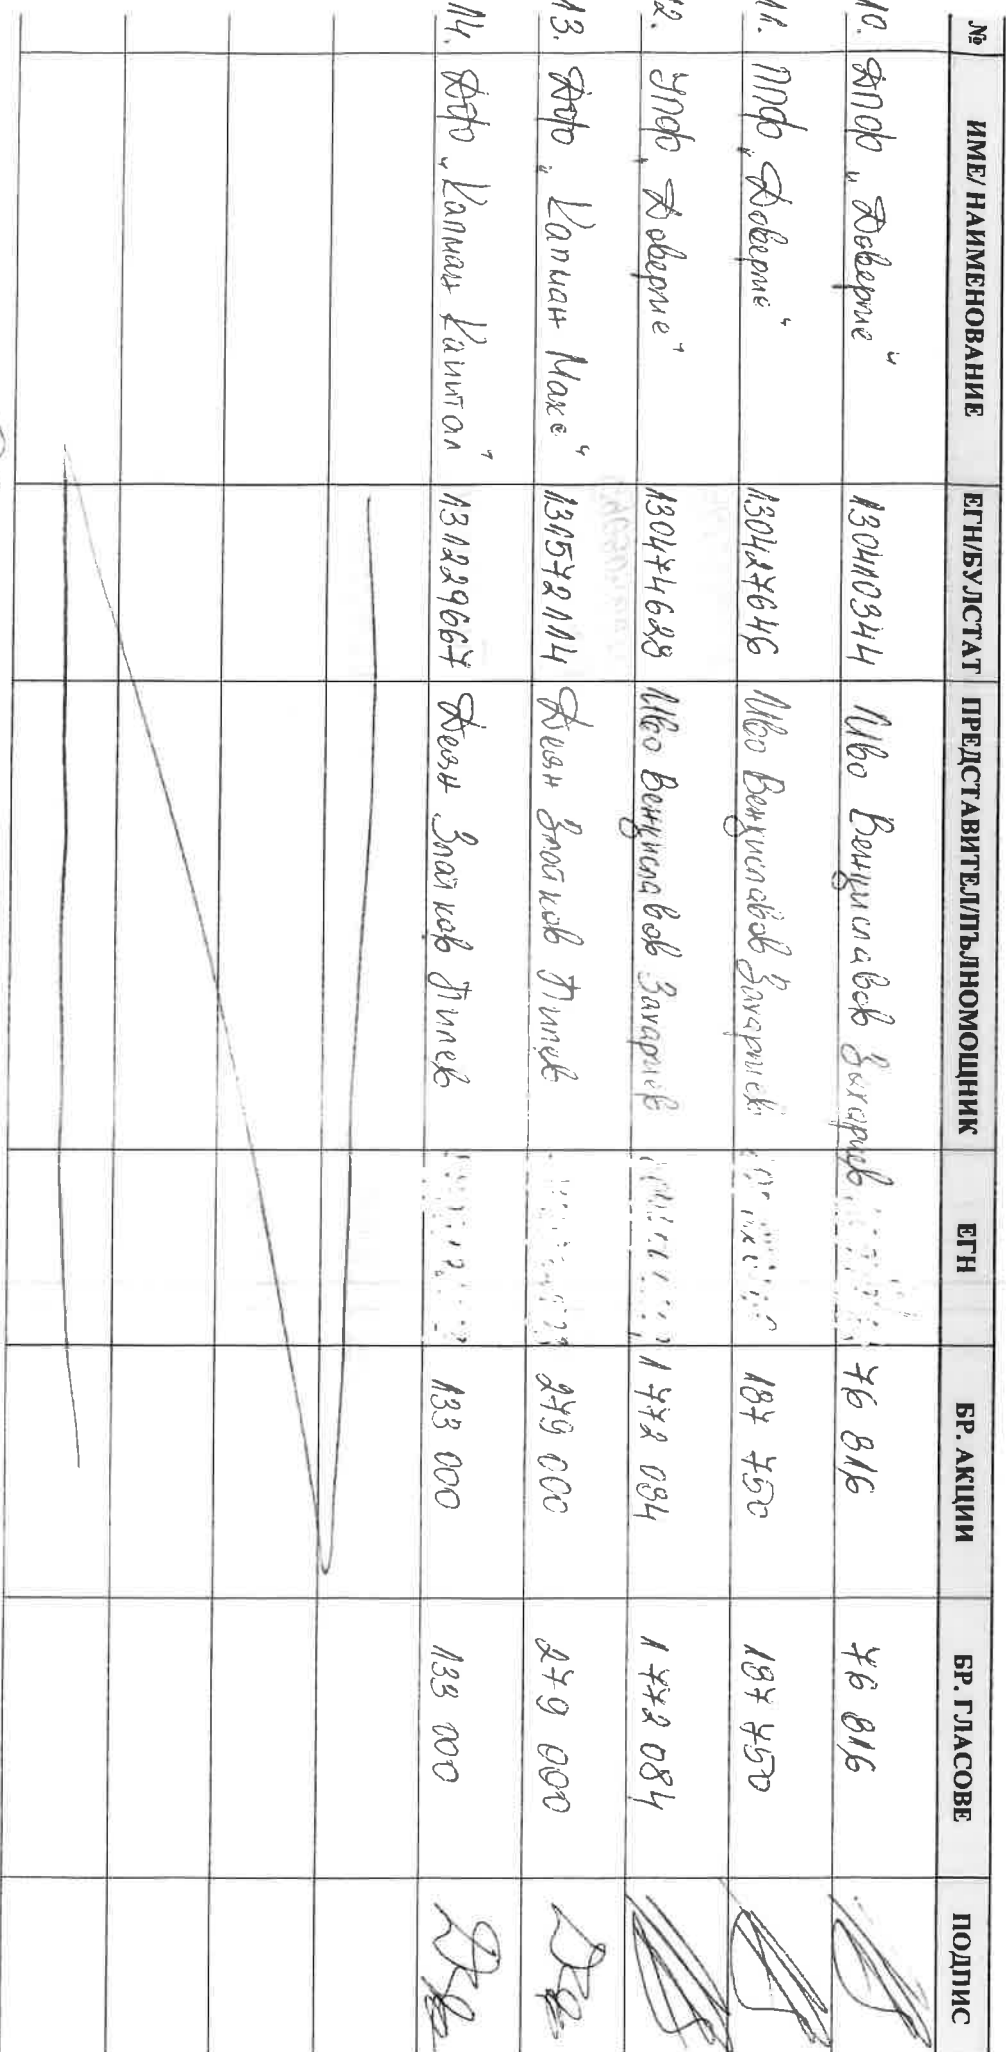 № ИМЕ/ НАИМЕНОВАНИЕ ЕГН/БУЛСТАТ ПРЕДСТАВИТЕЛ/ПЪЛНОМОЩНИК ЕГН БР. АКЦИИ БР. ГЛАСОВЕ ПОДПИС
10. ДПФ „Доверие“ 130410344 Иво Венциславов Захариев 76 816 76 816
11. ППФ „Доверие“ 130427646 Иво Венциславов Захариев 187 750 187 750
12. УПФ „Доверие“ 130474628 Иво Венциславов Захариев 1 772 084 1 772 084
13. ДФ „Капман Макс“ 131572114 Деян Златков Пилев 279 000 279 000
14. ДФ „Капман Капитал“ 131229667 Деян Златков Пилев 133 000 133 000